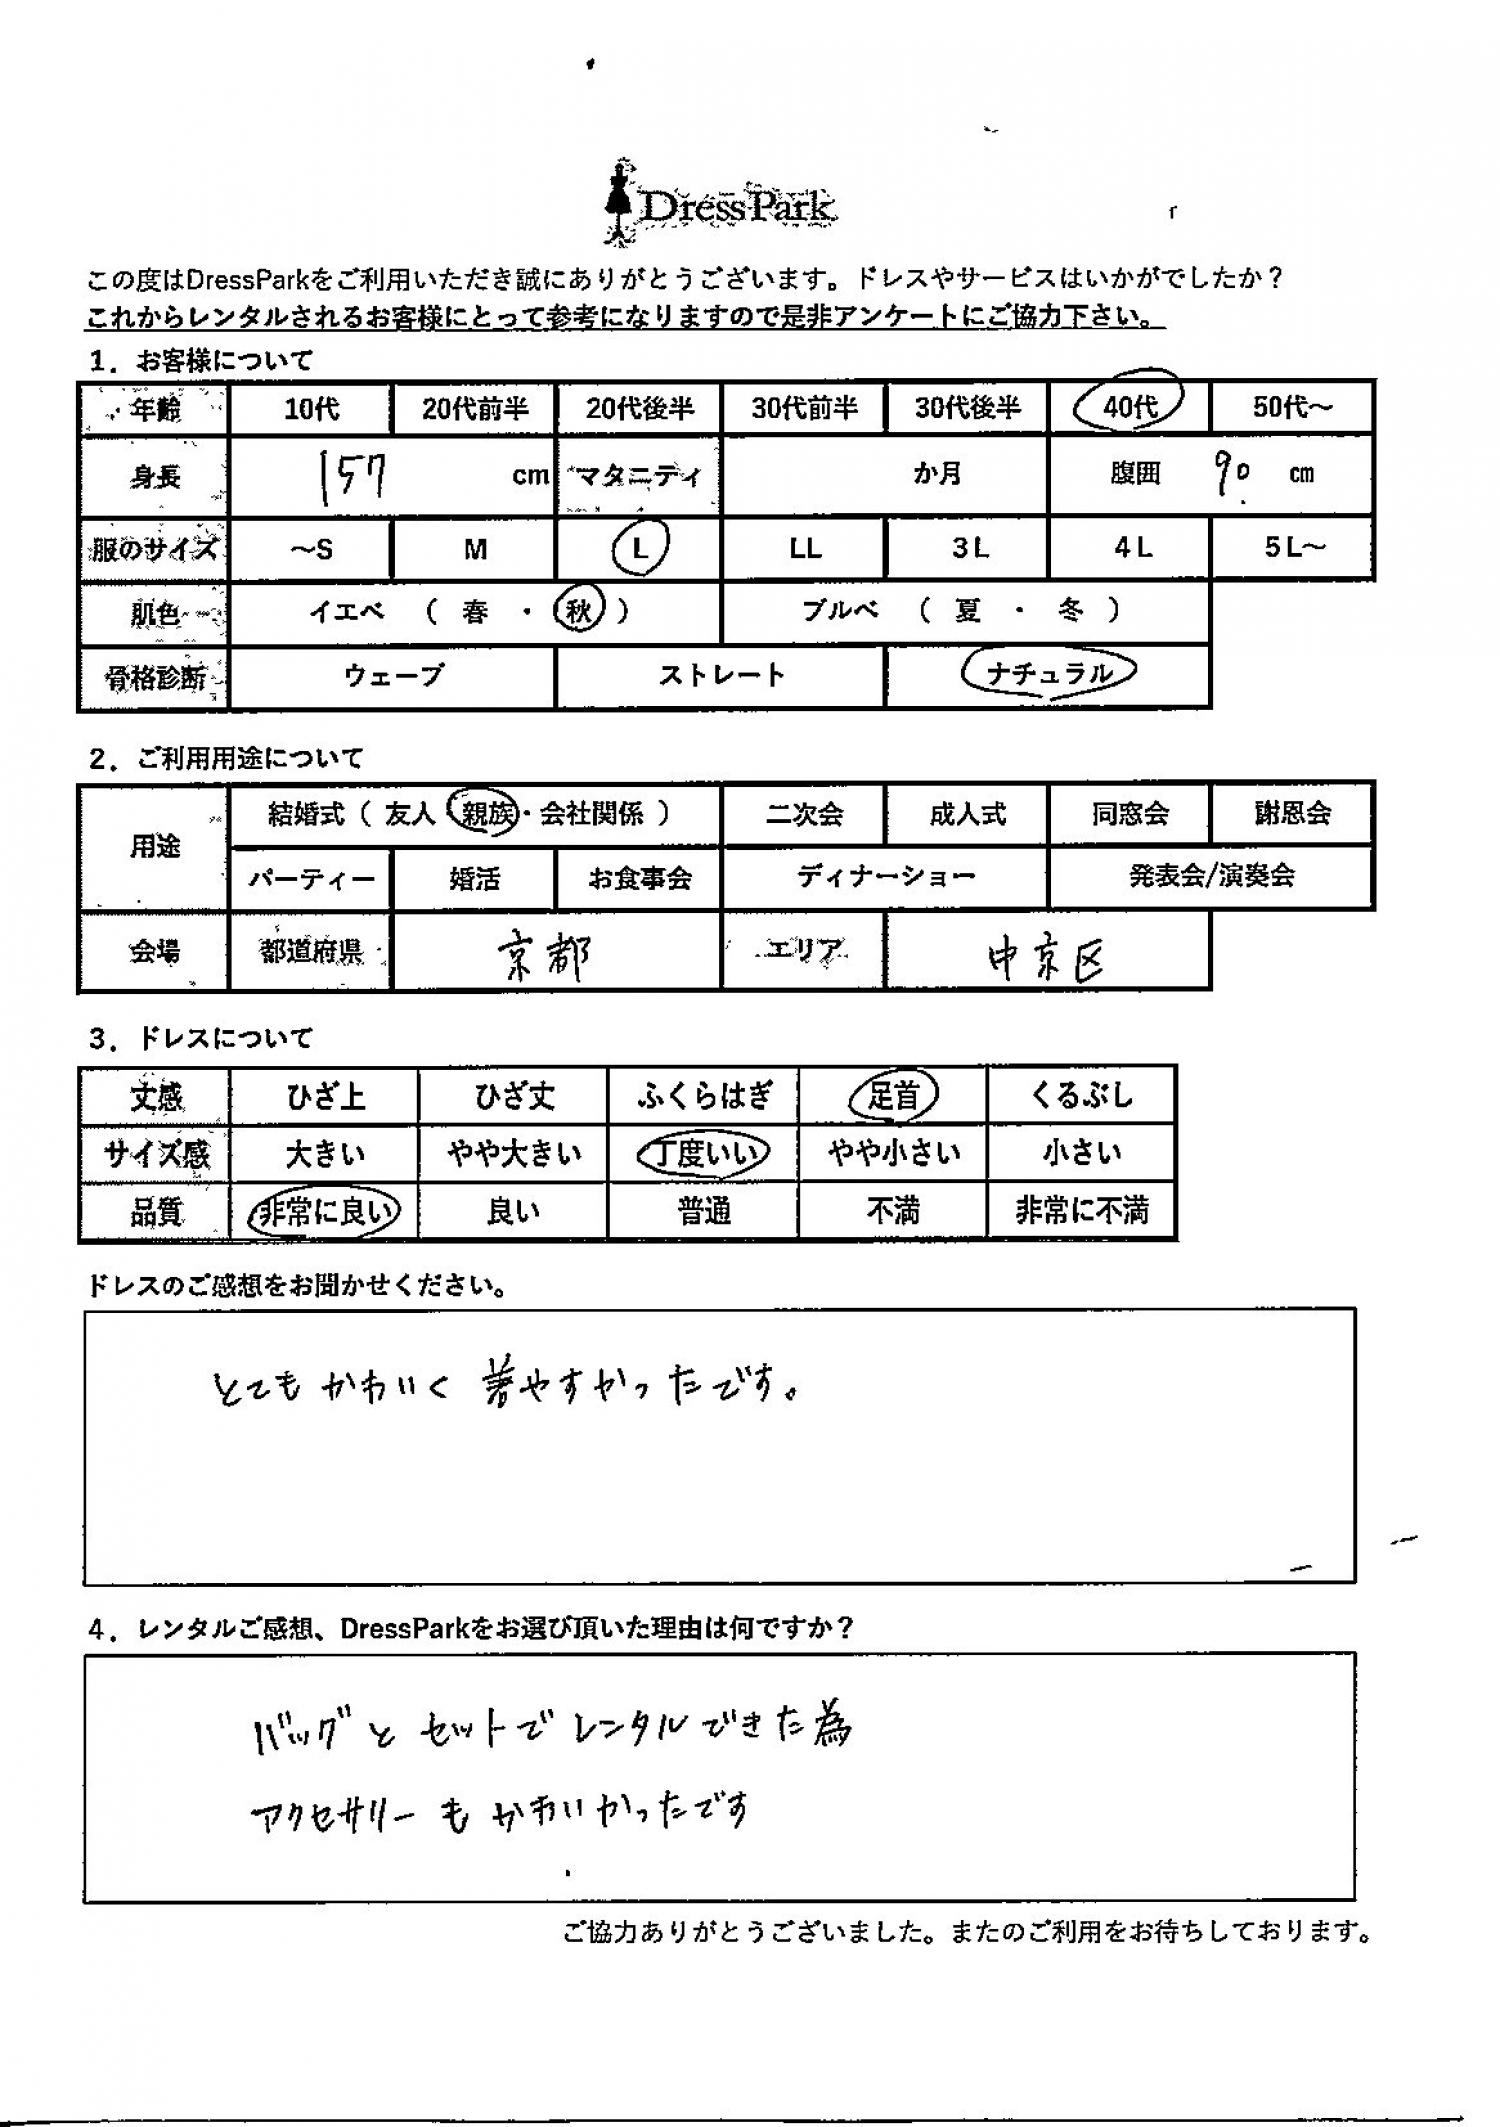 DressPark
この度はDressParkをご利用いただき誠にありがとうございます。ドレスやサービスはいかがでしたか？
これからレンタルされるお客様にとって参考になりますので是非アンケートにご協力下さい。
1．お客様について
年齢 10代 20代前半 20代後半 30代前半 30代後半 40代 50代～
身長 157 cm マタニティ か月 腹囲 90 cm
服のサイズ ～S M L LL 3L 4L 5L～
肌色 イエベ （ 春 ・ 秋 ） ブルベ （ 夏 ・ 冬 ）
骨格診断 ウェーブ ストレート ナチュラル
2．ご利用用途について
用途 結婚式（ 友人 親族・会社関係 ） 二次会 成人式 同窓会 謝恩会
パーティー 婚活 お食事会 ディナーショー 発表会/演奏会
会場 都道府県 京都 エリア 中京区
3．ドレスについて
丈感 ひざ上 ひざ丈 ふくらはぎ 足首 くるぶし
サイズ感 大きい やや大きい 丁度いい やや小さい 小さい
品質 非常に良い 良い 普通 不満 非常に不満
ドレスのご感想をお聞かせください。
とてもかわいく 着やすかったです。
4．レンタルご感想、DressParkをお選び頂いた理由は何ですか？
バッグと セットで レンタルできた為
アクセサリーも かわいかったです
ご協力ありがとうございました。またのご利用をお待ちしております。